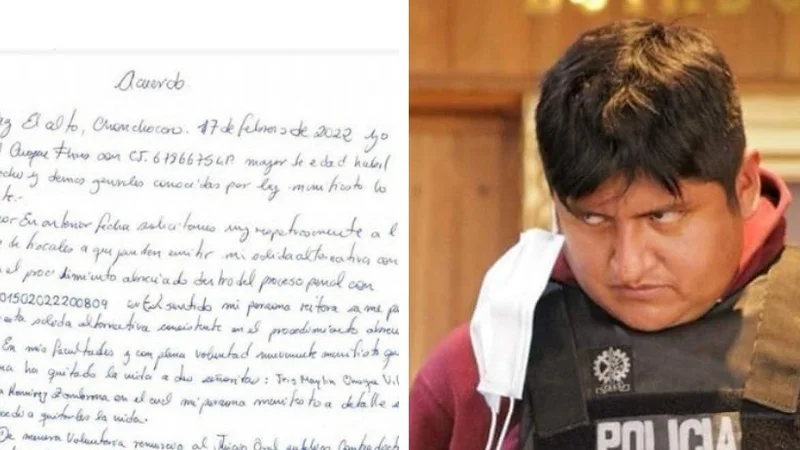 Acuerdo.
El alto, Chonchocoro. 17 de febrero de 2022 yo
Choque Flores con CI. 6786675LP mayor de edad habil
echo y demas generales conocidas por ley manifiesto lo
te.-
En anterior fecha solicitamos muy respetuosamente a l
de fiscales a que puedan emitir mi salida alternativa con
el procedimiento abreviado dentro del proceso penal con
01502022200809 sentido mi persona reitera se me pa
esta salida alternativa consistente en el procedimiento abrev
En mis facultades y con plena voluntad nuevamente manifiesto que
na ha quitado la vida a dos señoritas: Iris Maylin Choque Vil
Ramirez Zambrana en el cual mi persona manifesto a detalle
cedi a quitarles la vida.
De manera voluntaria renuncio al Juicio Oral
POLICIA